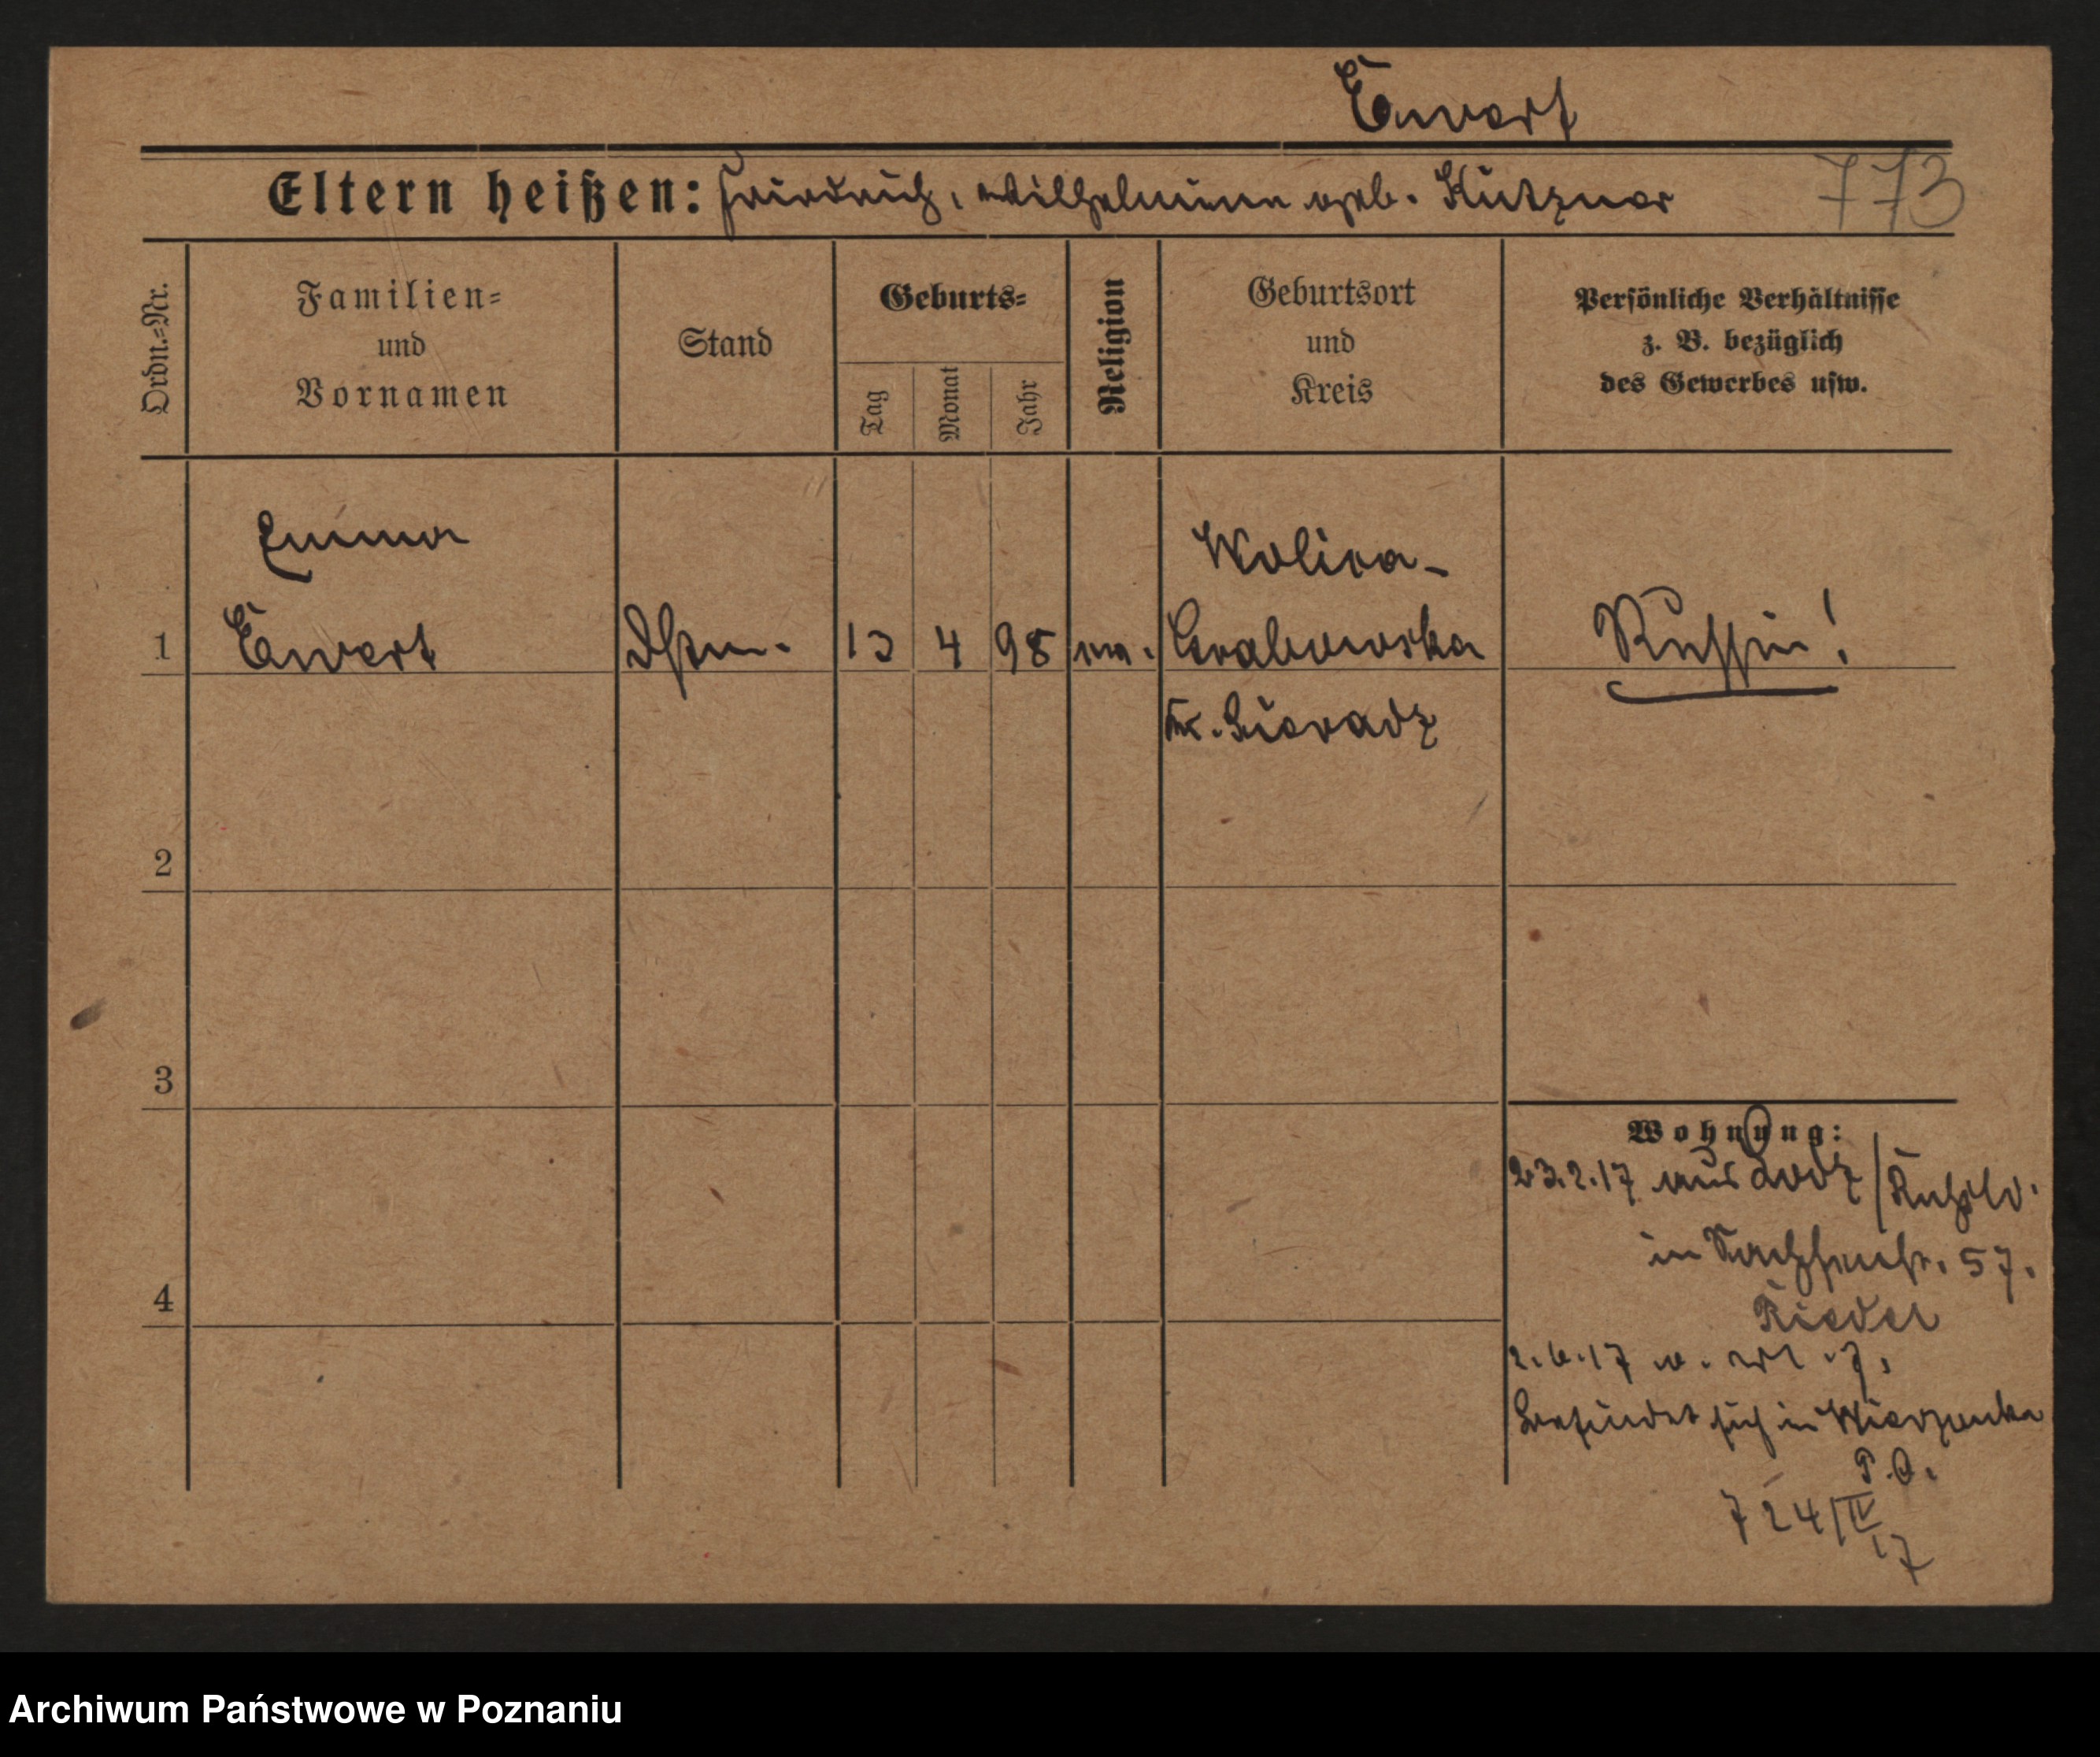 Ewert
Eltern heißen: Friedrich, Wilhelmine geb. Kutzner 773
Ordn.=Nr.
Familien=
und
Vornamen
Stand
Geburts=
Tag
Monat
Jahr
Religion
Geburtsort
und
Kreis
Persönliche Verhältnisse
z. B. bezüglich
des Gewerbes usw.
Emma
Wolica-
1 Ewert 13 4 98 Grabowska Russin!
Kr. Sieradz
2
3
4
Wohnung:
23.2.17 aus Lodz / Rußld.
in Sachsenstr. 57.
Rieder
2.6.17
befindet sich in Wierzonka
P.O.
724/IV
17
Archiwum Państwowe w Poznaniu